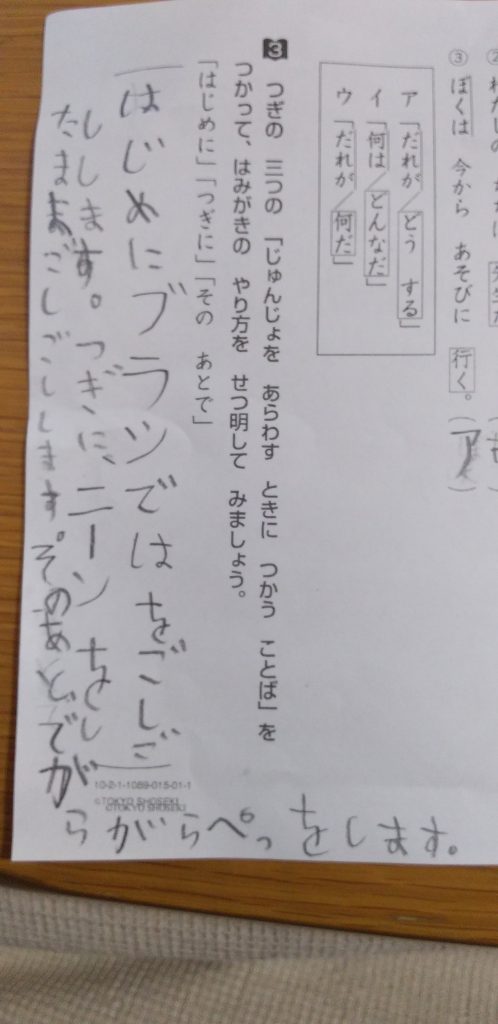 ③ ぼくは 今から あそびに 行く。（ア）
ア 「だれが／どう する」
イ 「何は／どんなだ」
ウ 「だれが／何だ」
3 つぎの 三つの 「じゅんじょを あらわす ときに つかう ことば」を
つかって、はみがきの やり方を せつ明して みましょう。
「はじめに」「つぎに」「その あとで」
はじめにブラシではをごしご
しします。つぎに、ニーンをし
たままごしごしします。そのあとでが
らがらぺっをします。
10-2-1-1089-015-01-1
©TOKYO SHOSEKI
©TOKYO SHOSEKI